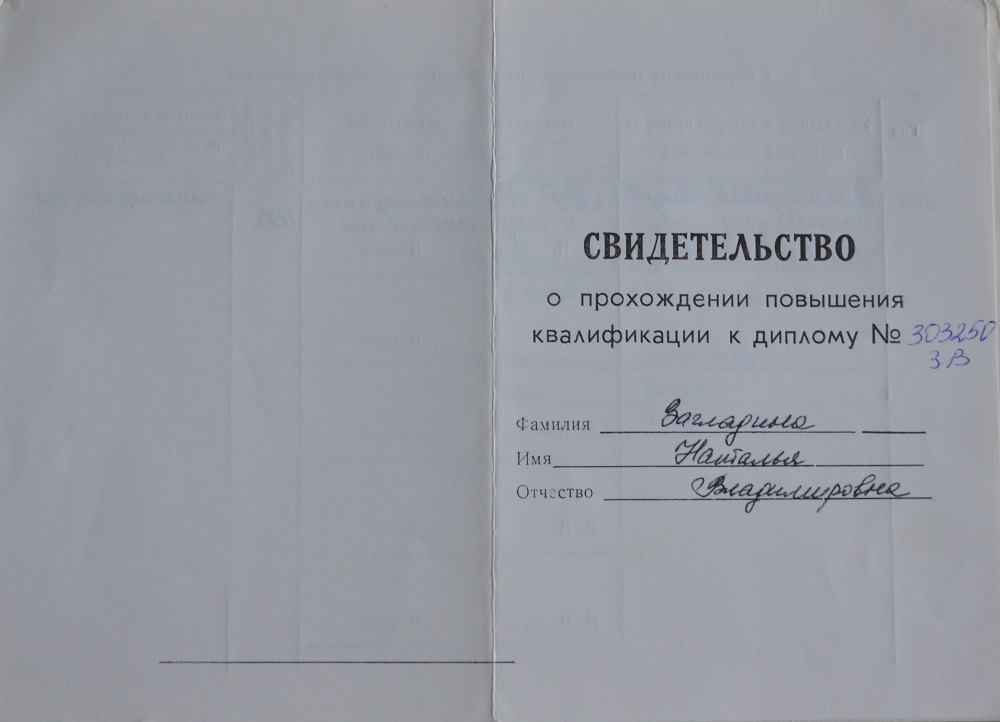 СВИДЕТЕЛЬСТВО
о прохождении повышения
квалификации к диплому № 303250
ЗВ
Фамилия
Имя Наталья
Отчество Владимировна